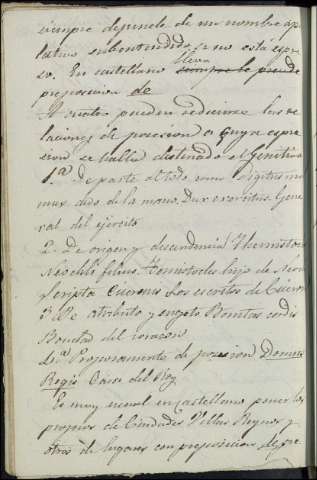 siempre depende de un nombre ape
lativo subentendido, si no está espre
so. En castellano lleva siempre la puede
preposicion de
A cuatro pueden reducirse las re
laciones de posesion a cuya espre
sion se halla destinado el Genitivo
1.ª De parte al todo como digitus ma
nus dedo de la mano. Dux exercitus Gene
ral del ejército
2.ª De origen y descendencia Themistocles
Neoclis filius, Temistocles hijo de Neocl
Scripta Ciceronis Los escritos de Ciceron
3.ª De atributo y sugeto Bonitas cordis
Bondad del corazon
4.ª Propiamente de posesion Domus
Regis Casa del Rey
Es muy usual en Castellano poner los
propios de Ciudades Villas Reynos y
otros de lugares con preposicion de pre